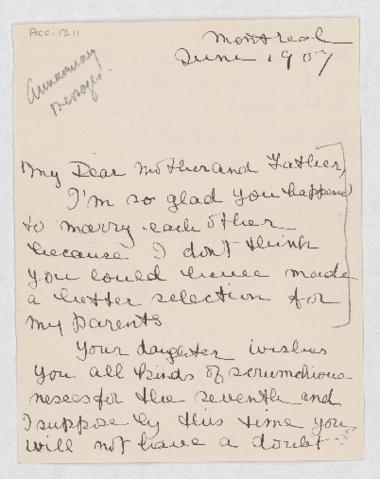 Acc. 1211
Montreal
June 1907
My Dear Mother and Father,
I'm so glad you happened
to marry each other
because I don't think
you could have made
a better selection for
my parents
Your daughter wishes
you all kinds of scrumchious
nesses for the seventh and
I suppose by this time you
will not have a doubt